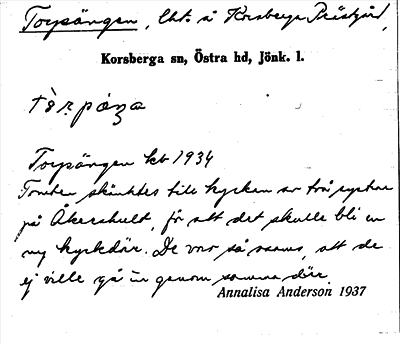 Torpängen, Lht. å Korsberga Prästgård,
Korsberga sn, Östra hd, Jönk. l.
Torpängen kb 1934
Tomten skänktes till kyrkan av två systrar
på Åkershult, för att det skulle bli en
ny kyrkdör. De var så osams, att de
ej ville gå in genom samma dörr.
Annalisa Anderson 1937